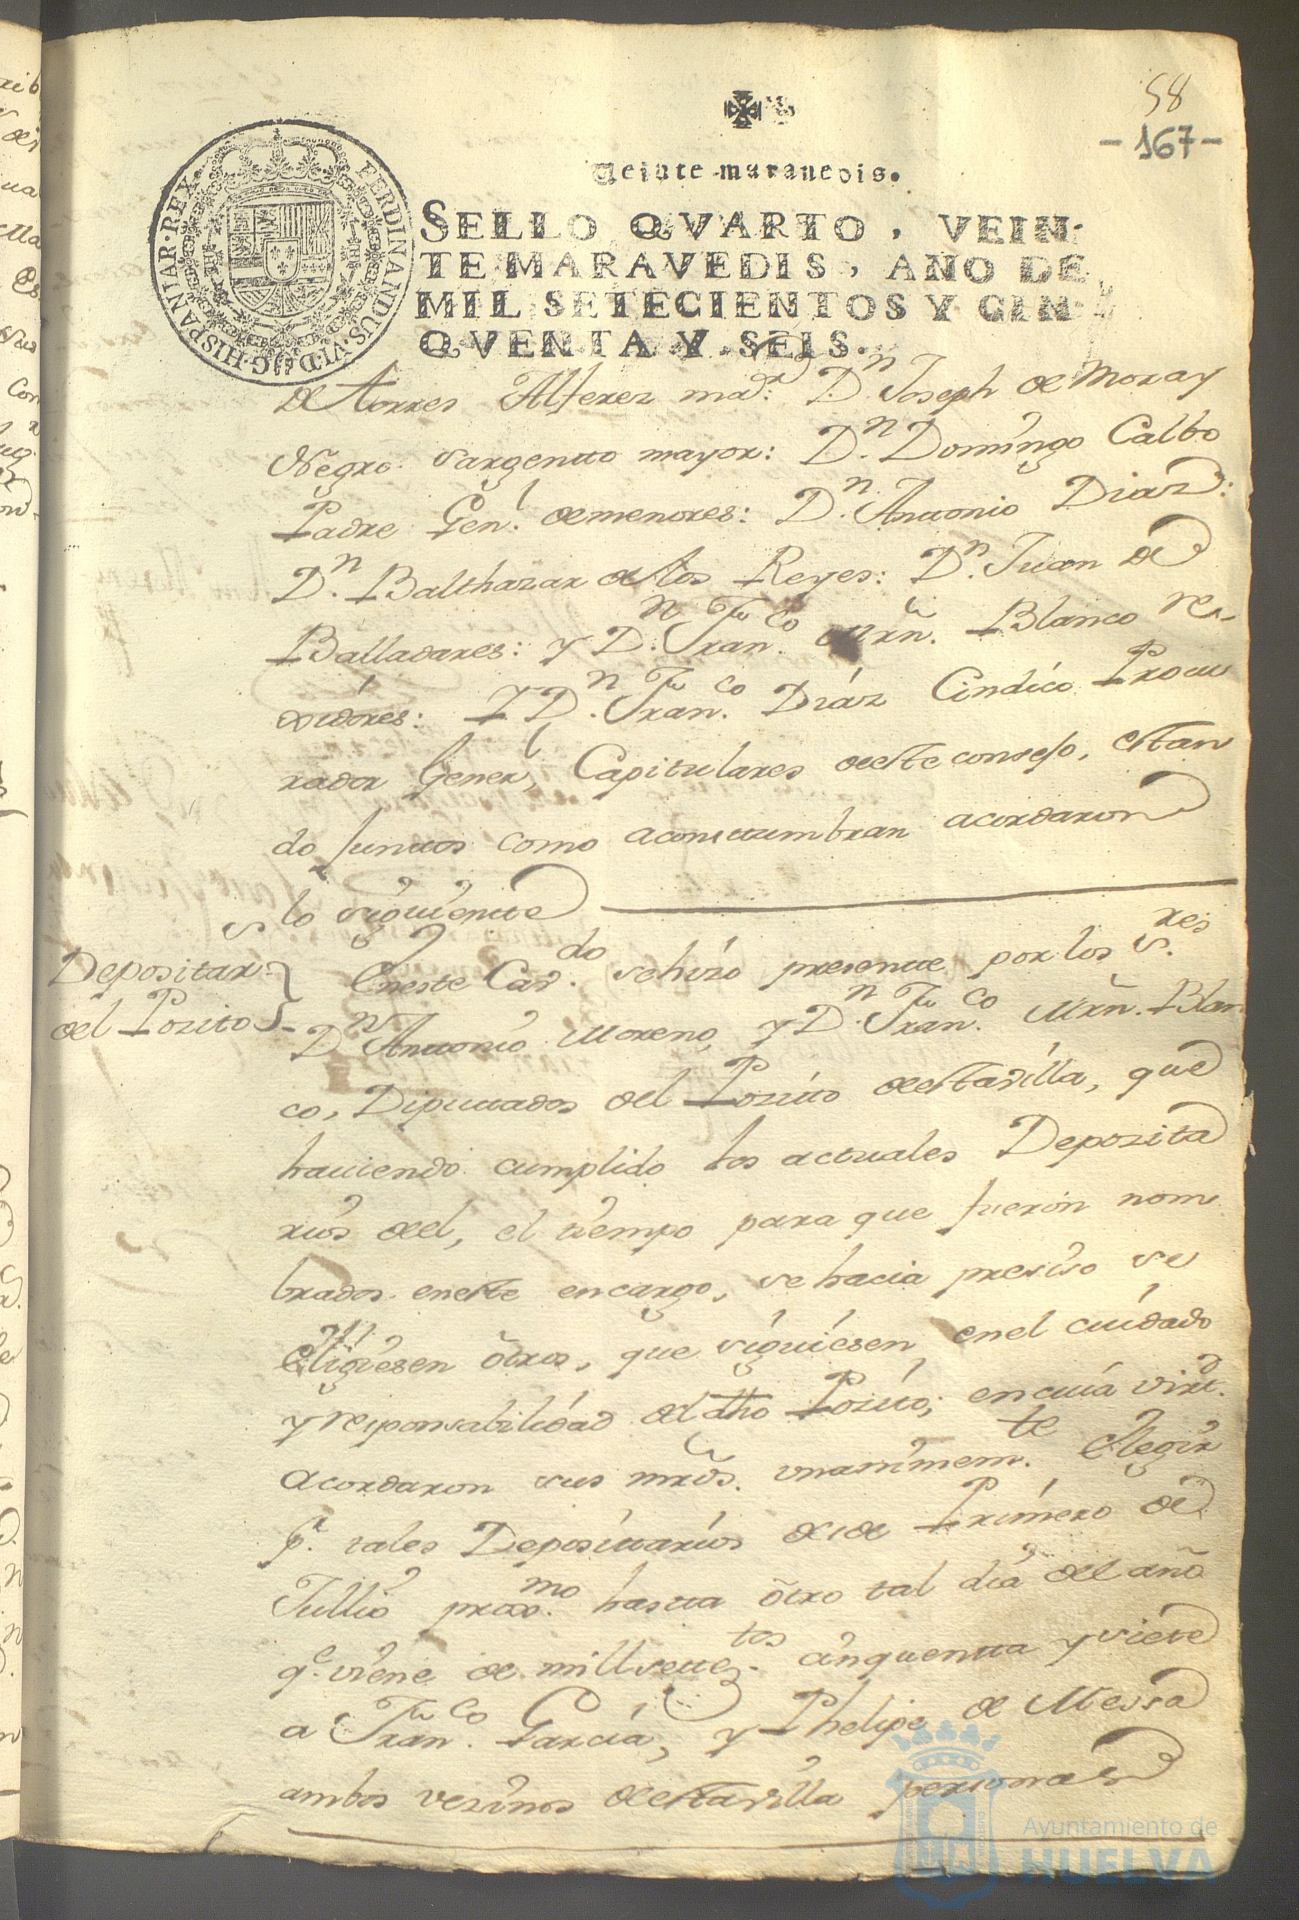 58
- 167 -
Veinte maravedis.
SELLO QVARTO, VEIN-
TE MARAVEDIS, AÑO DE
MIL SETECIENTOS Y CIN-
QVENTA Y SEIS.
FERDINANDUS·VI·D·G·HISPANIAR·REX
de Torres Alferez mar: Dn Joseph de Mora y
Negro Sargentto mayor: Dn Domingo Calbo
Padre Genl de menores: Dn Anttonio Diaz:
Dn Balthazar de los Reyes: Dn Juan de
Balladares: y Dn Franco Mrn. Blanco re-
xidores: Y Dn Franco Diáz Cindico Procu
rador Generl, Capitulares de este consejo, estan
do junttos como aconstumbran acordaron
lo siguientte
Depositars
del Pozito
En este Cavdo se hizo presentte por los Sres
Dn Anttonio Moreno, y Dn Franco Mrn. Blan
co, Diputtados del Pozitto de esta villa, que
haviendo cumplido los actuales Deposita
rios de el, el tiempo para que fueron nom
brados en este encargo, se hacia preciso se
eligiesen otros, que siguiesen en el cuidado
y responsabilidad del dho Pozitto; en cuia virtd
acordaron sus mrds. unanimemte Elegir
pr. tales Deposittarios desde Primero de
Jullio proxmo hastta otro tal dia del año
qe viene de mill settetos cinquentta y siete
a Franco Garcia, y Phelipe de Messa
ambos vezinos de esta villa personas
Ayuntamiento de
HUELVA